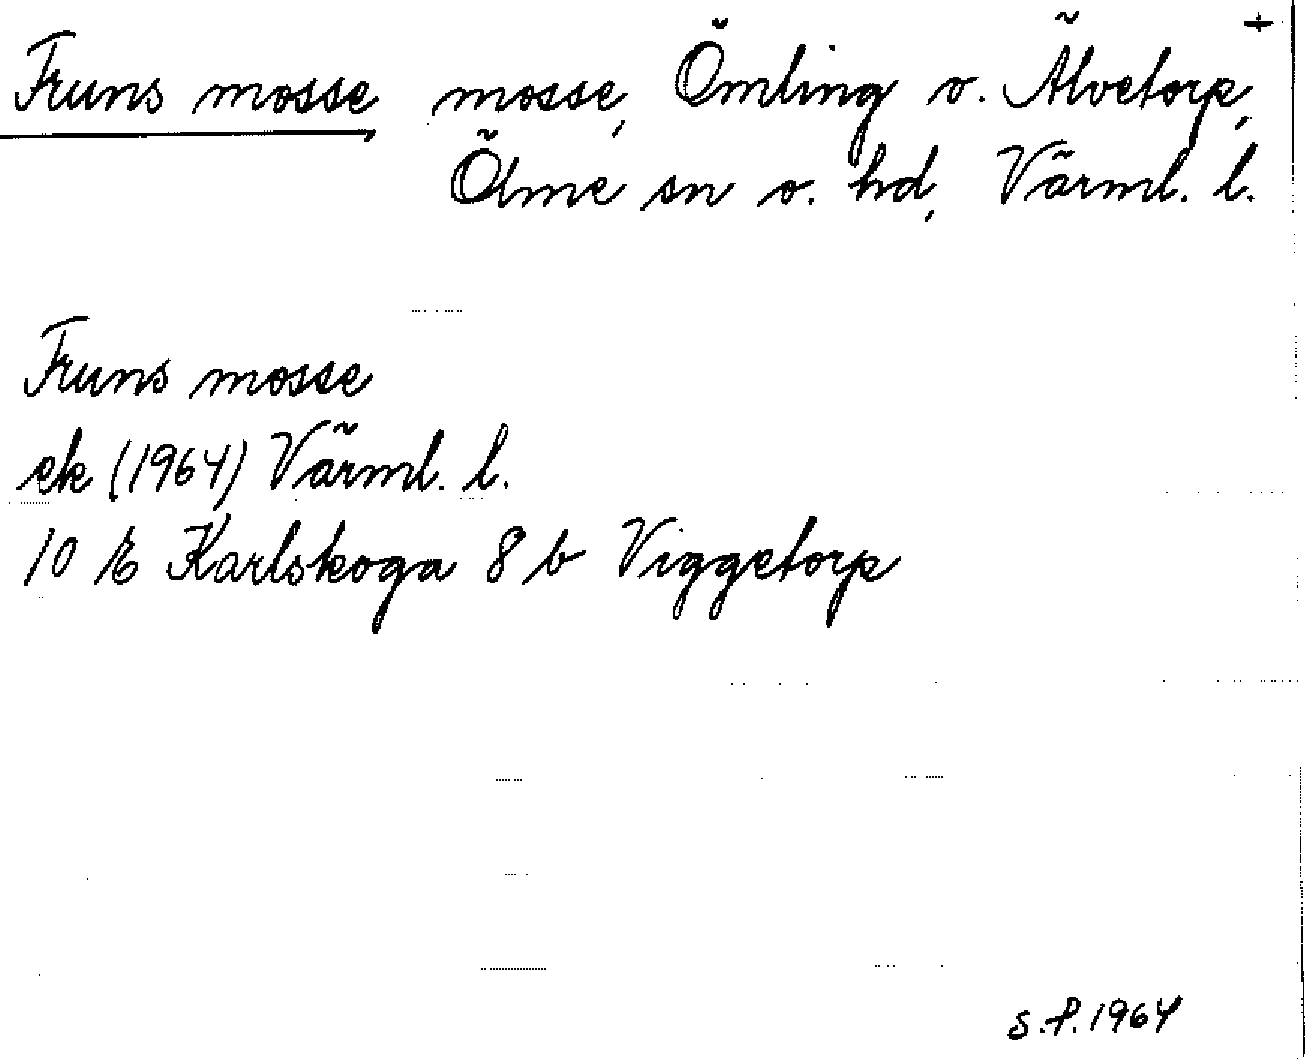 Fruns mosse, mosse, Ömling o. Älvetorp, +
Ölme sn o. hd, Värml. l.
Fruns mosse
ek (1964) Värml. l.
10 E Karlskoga 8 b Viggetorp
S.P. 1964